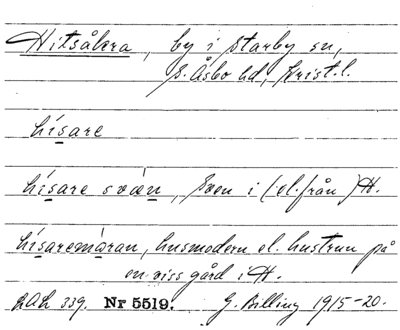 Hitsåkra, by i Starby sn,
S. Åsbo hd, Krist. l.
hísare
hísare svän, Sven i (el. från) H.
hísaremäran, husmodern el. hustrun på
en viss gård i H.
LAL 339. Nr 5519. G. Billing 1915-20.